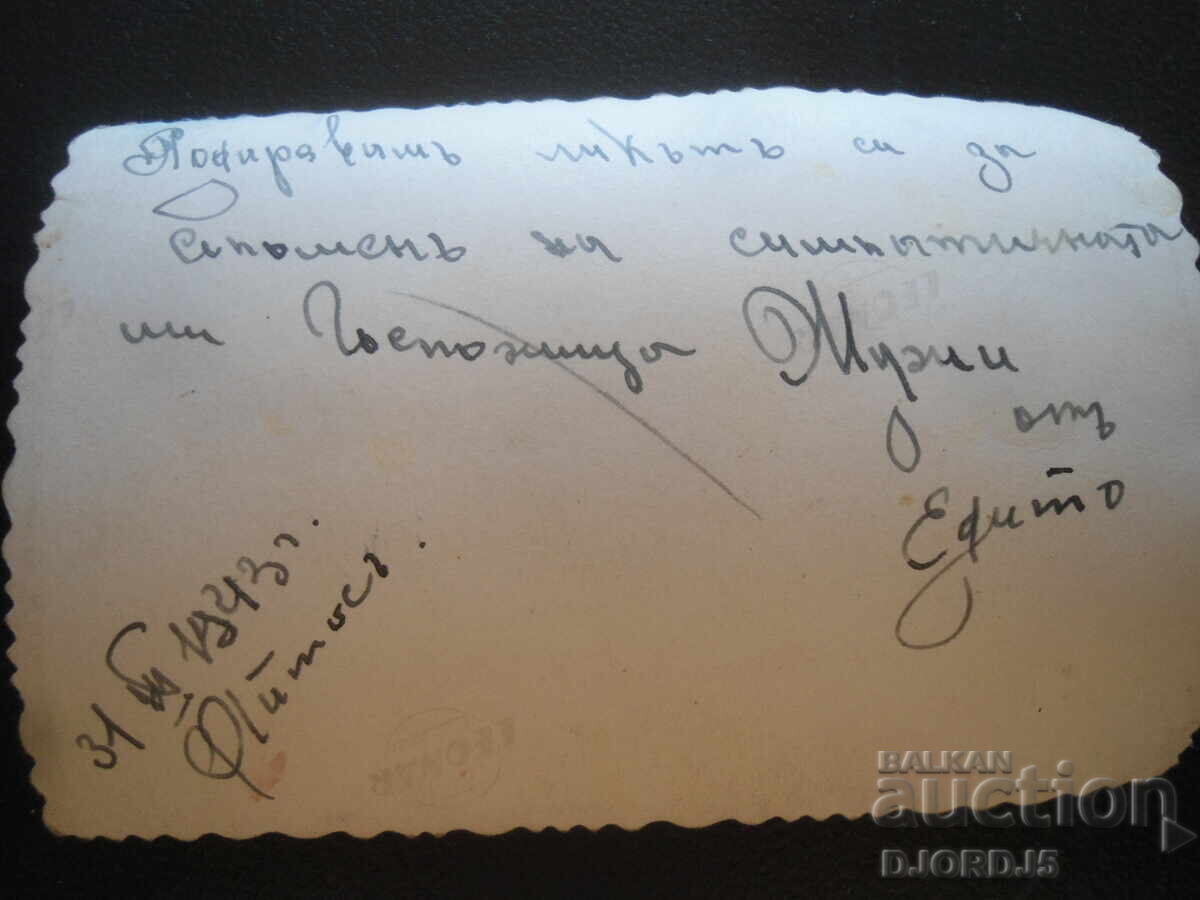 Подаравамъ ликътъ си за
спомень на симпатичната
ми Госпожица Мужи
отъ
Едито
31 III 1943 г.
Айтос.
LEONAR
BALKAN
auction
DJORDJ5